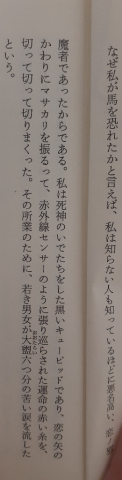 なぜ私が馬を恐れたかと言えば、私は知らない人も知っているほどに悪名高い、恋
魔者であったからである。私は死神のいでたちをした黒いキューピッドであり、恋の矢の
かわりにマサカリを振るって、赤外線センサーのように張り巡らされた運命の赤い糸を、
切って切って切りまくった。その所業のために、若き男女が大盥六つ分の苦い涙を流した
という。